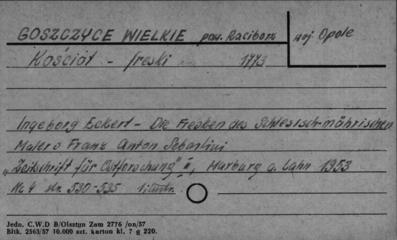 GOSZCZYCE WIELKIE pow. Racibórz woj Opole
Kościół - freski 1773
Ingeborg Eckert - Die Fresken des Schlesisch-mährischen
Malers Franz Anton Sebastini
"Zeitschrift für Ostforschung" II, Marburg a. Lahn 1953
Nr 4 str. 530-535
Jedn. C.W.D B/Olsztyn Zam 2776 /on/57
Bltk. 2563/57 10.000 szt. karton kl. ? g 220.